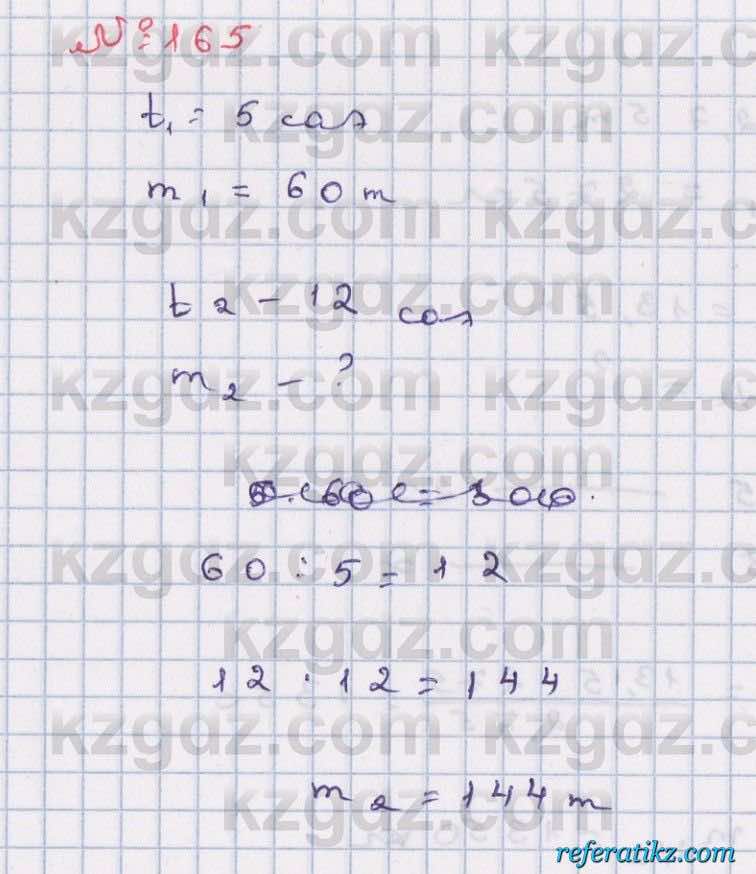 №165
t₁ = 5 сағ
m₁ = 60 т
t₂ – 12 сағ
m₂ – ?
60 : 5 = 12
12 · 12 = 144
m₂ = 144 т
kzgdz.com
referatikz.com